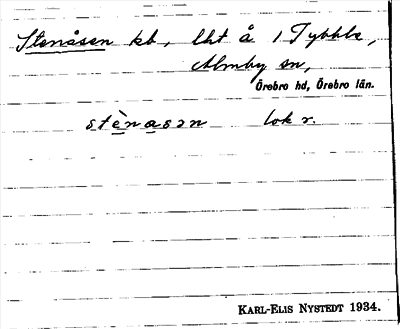 Stenåsen kb, lht å 1 Tybble,
Almby sn,
Örebro hd, Örebro län.
stènasən lok r.
KARL-ELIS NYSTEDT 1934.